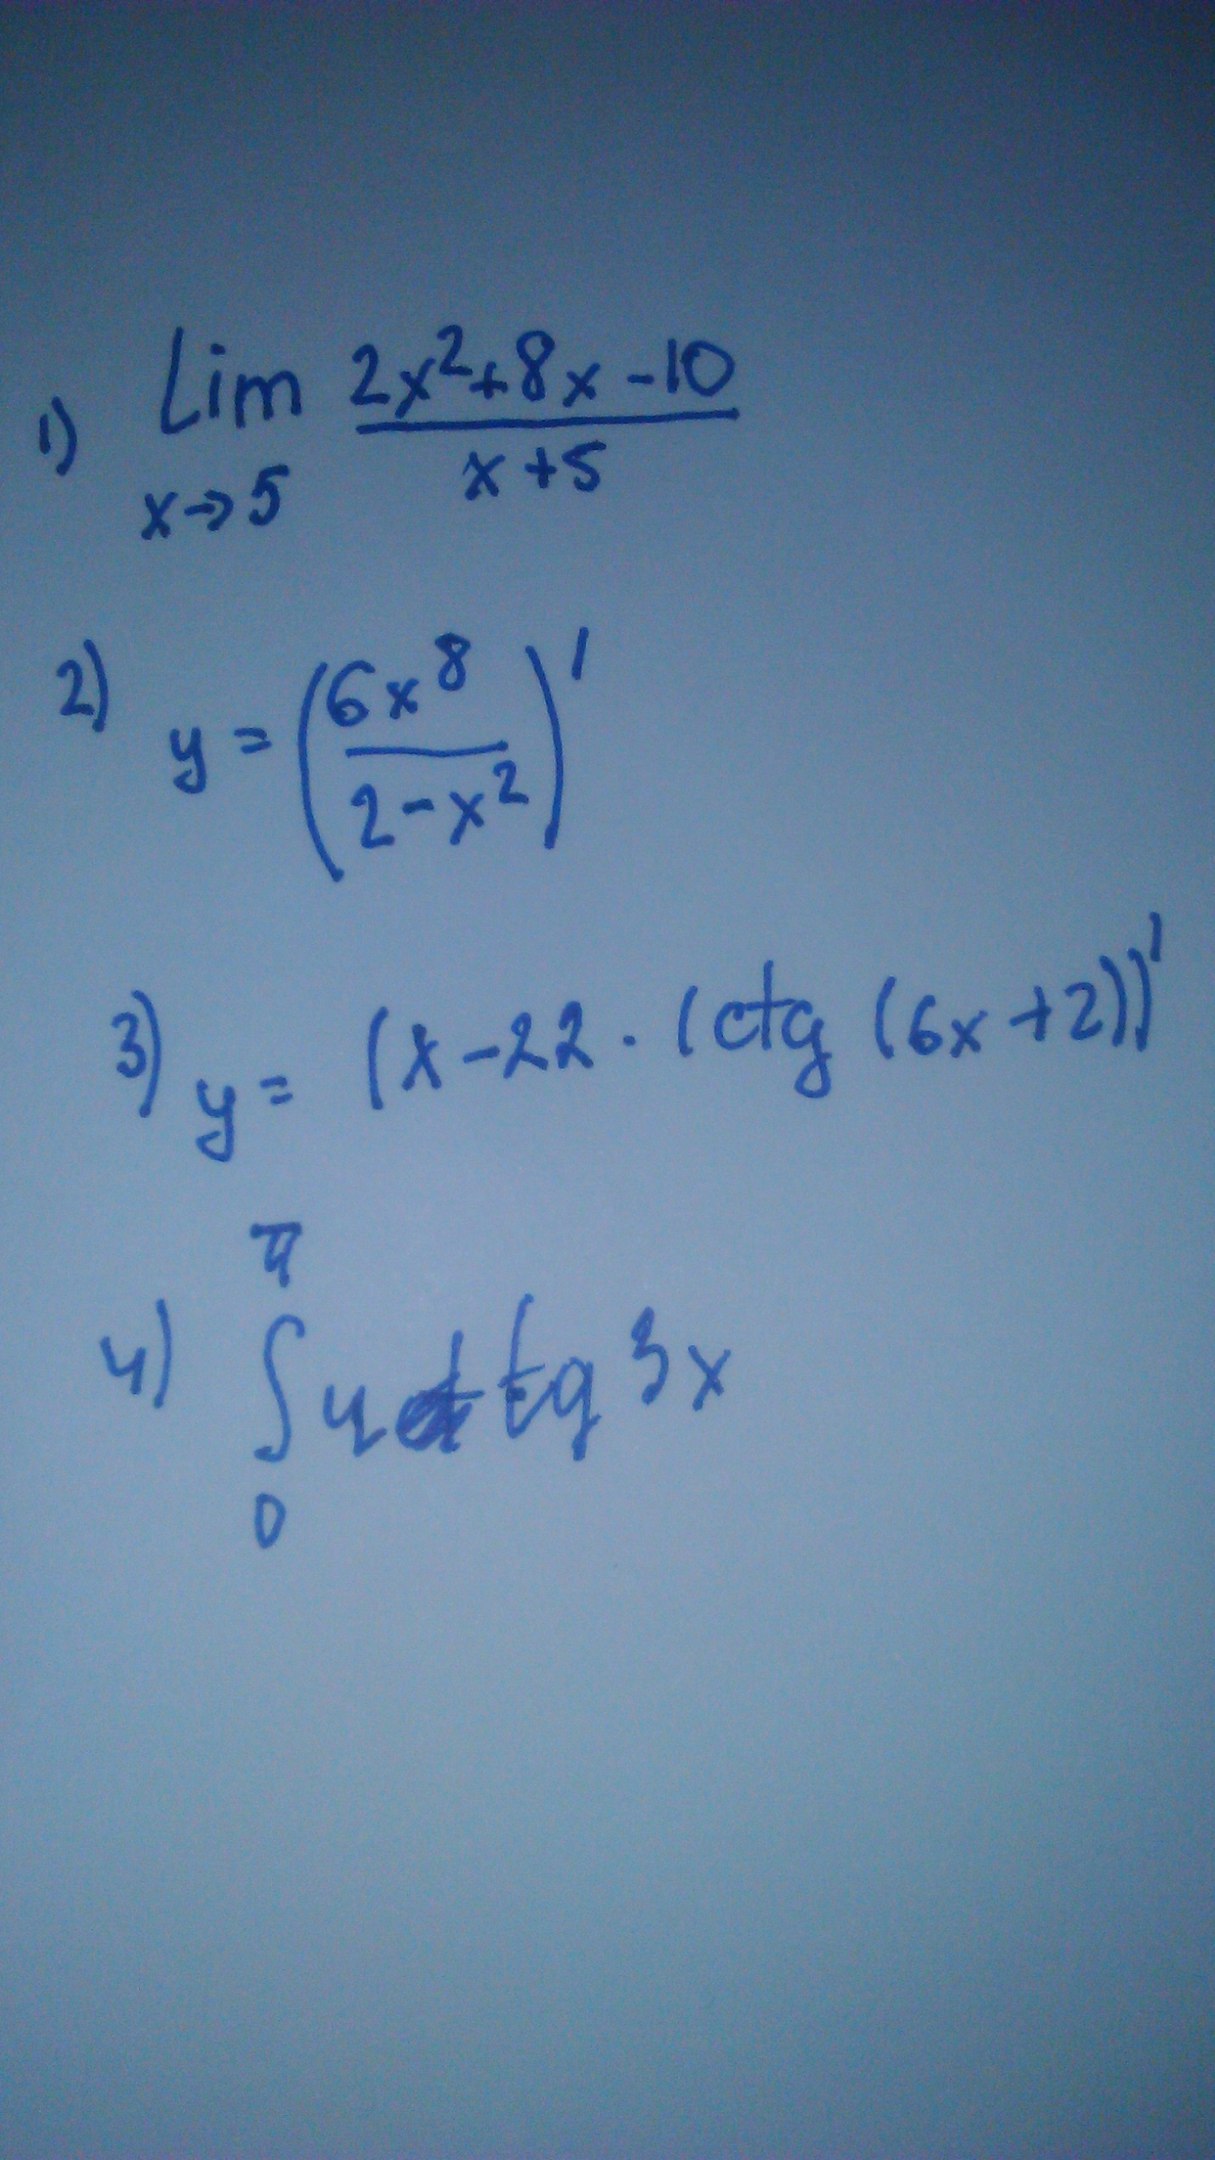 1) Lim 2x²+8x-10 / x+5
x→5
2) y = (6x⁸ / 2-x²)'
3) y = (x-22·(ctg(6x+2))'
π
4) ∫ 4 tg 3x
0